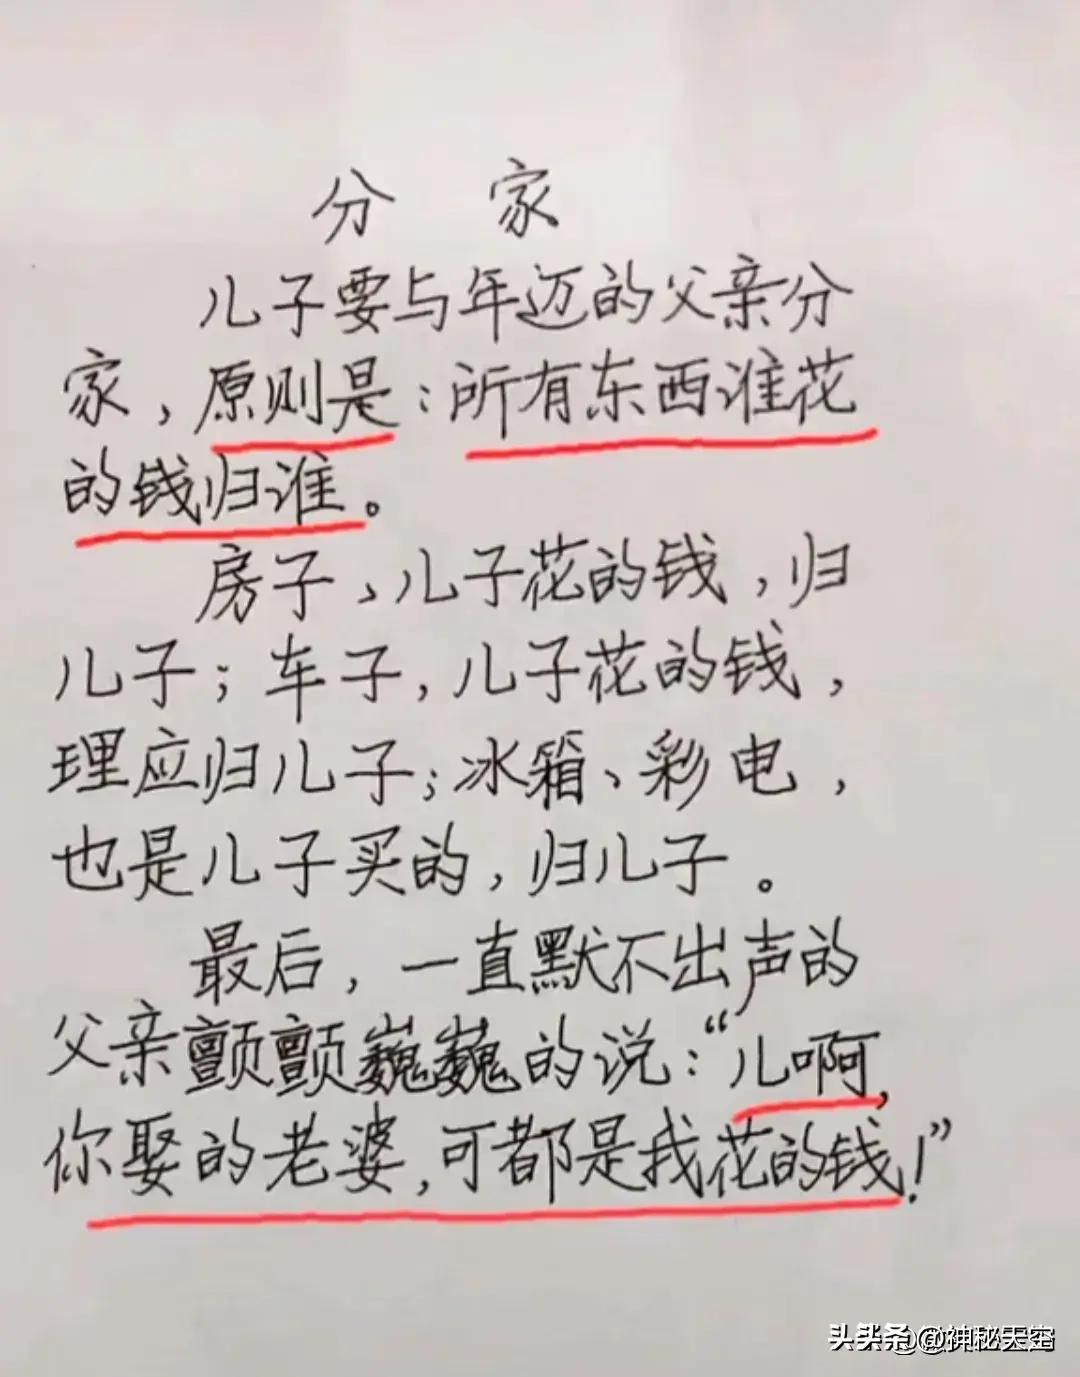 分 家
儿子要与年迈的父亲分
家，原则是：所有东西谁花
的钱归谁。
房子、儿子花的钱，归
儿子；车子，儿子花的钱，
理应归儿子；冰箱、彩电，
也是儿子买的，归儿子。
最后，一直默不出声的
父亲颤颤巍巍的说：“儿啊，
你娶的老婆，可都是我花的钱！”
头头条@神秘天空